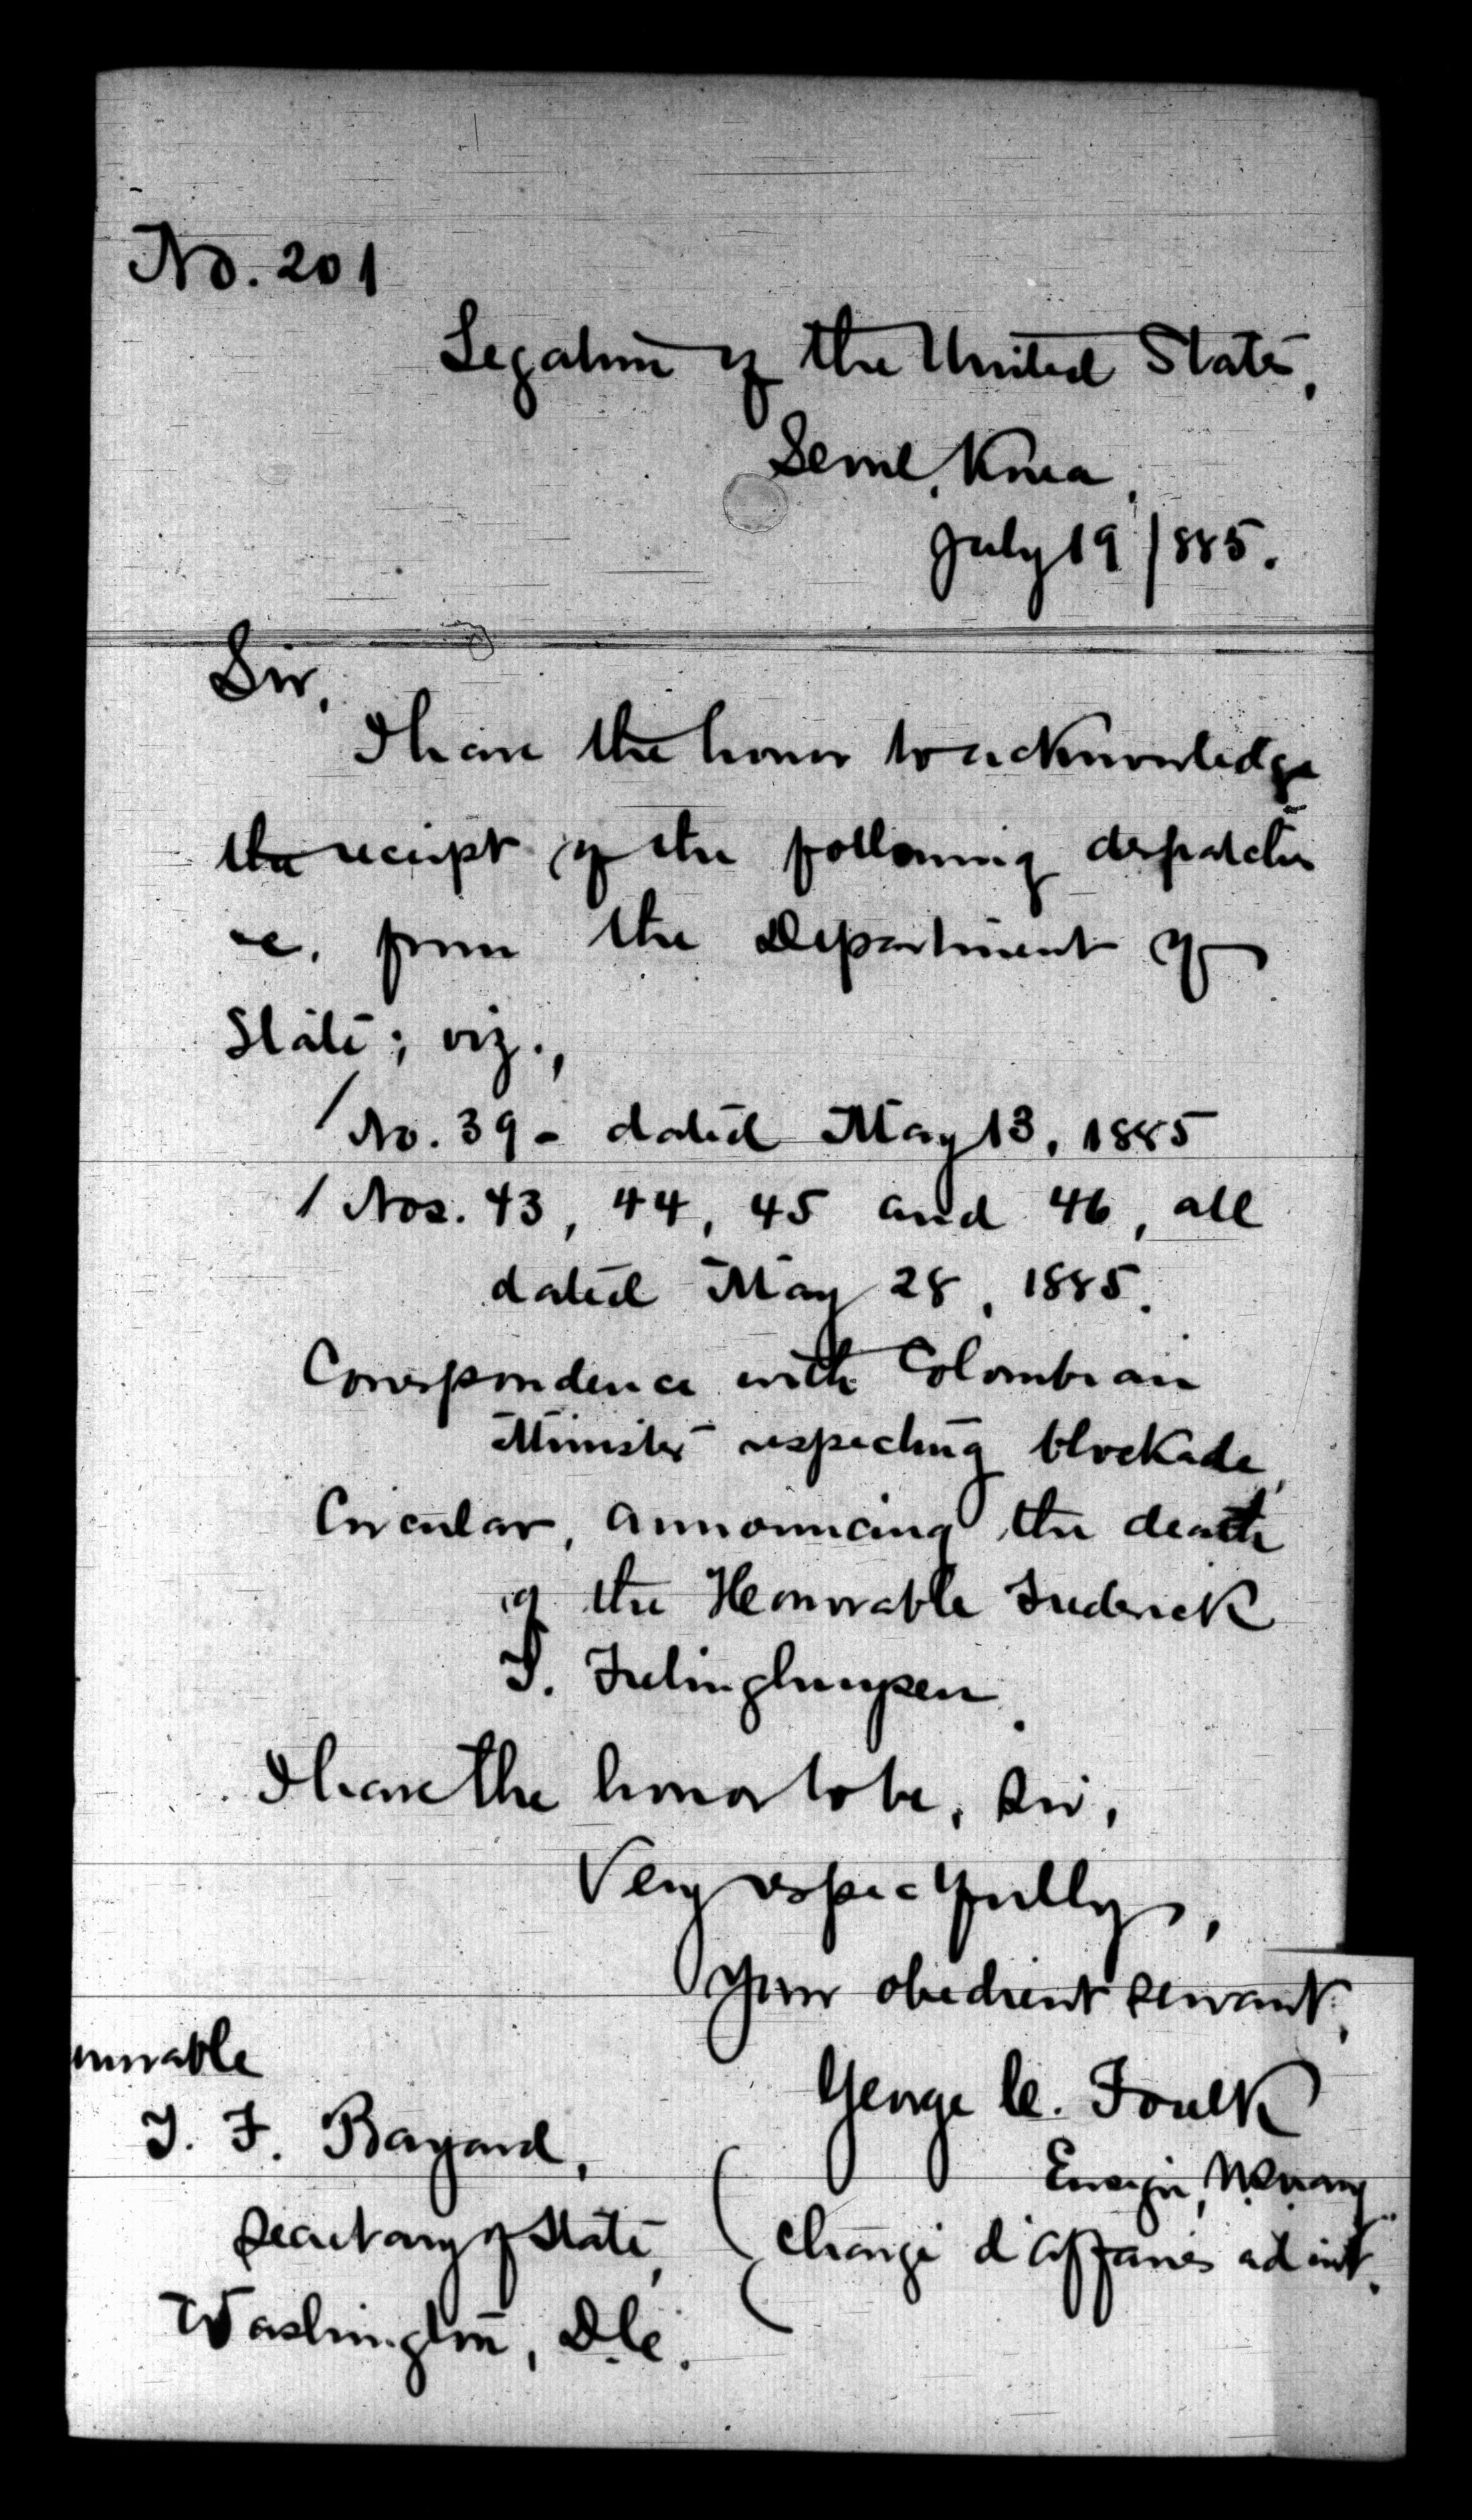 No. 201
Legation of the United States,
Seoul, Korea,
July 19, 1885.
Sir,
I have the honor to acknowledge
the receipt of the following despatches
&c. from the Department of
State; viz.,
/ No. 39 - dated May 13, 1885
/ Nos. 43, 44, 45 and 46, all
dated May 28, 1885.
Correspondence with Colombian
Minister respecting blockade,
Circular, announcing the death
of the Honorable Frederick
T. Frelinghuysen.
I have the honor to be, Sir,
Very respectfully,
Your obedient servant,
George C. Foulk
Ensign, U.S. Navy
Chargé d'Affaires ad int.
norable
T. F. Bayard,
Secretary of State,
Washington, D.C.